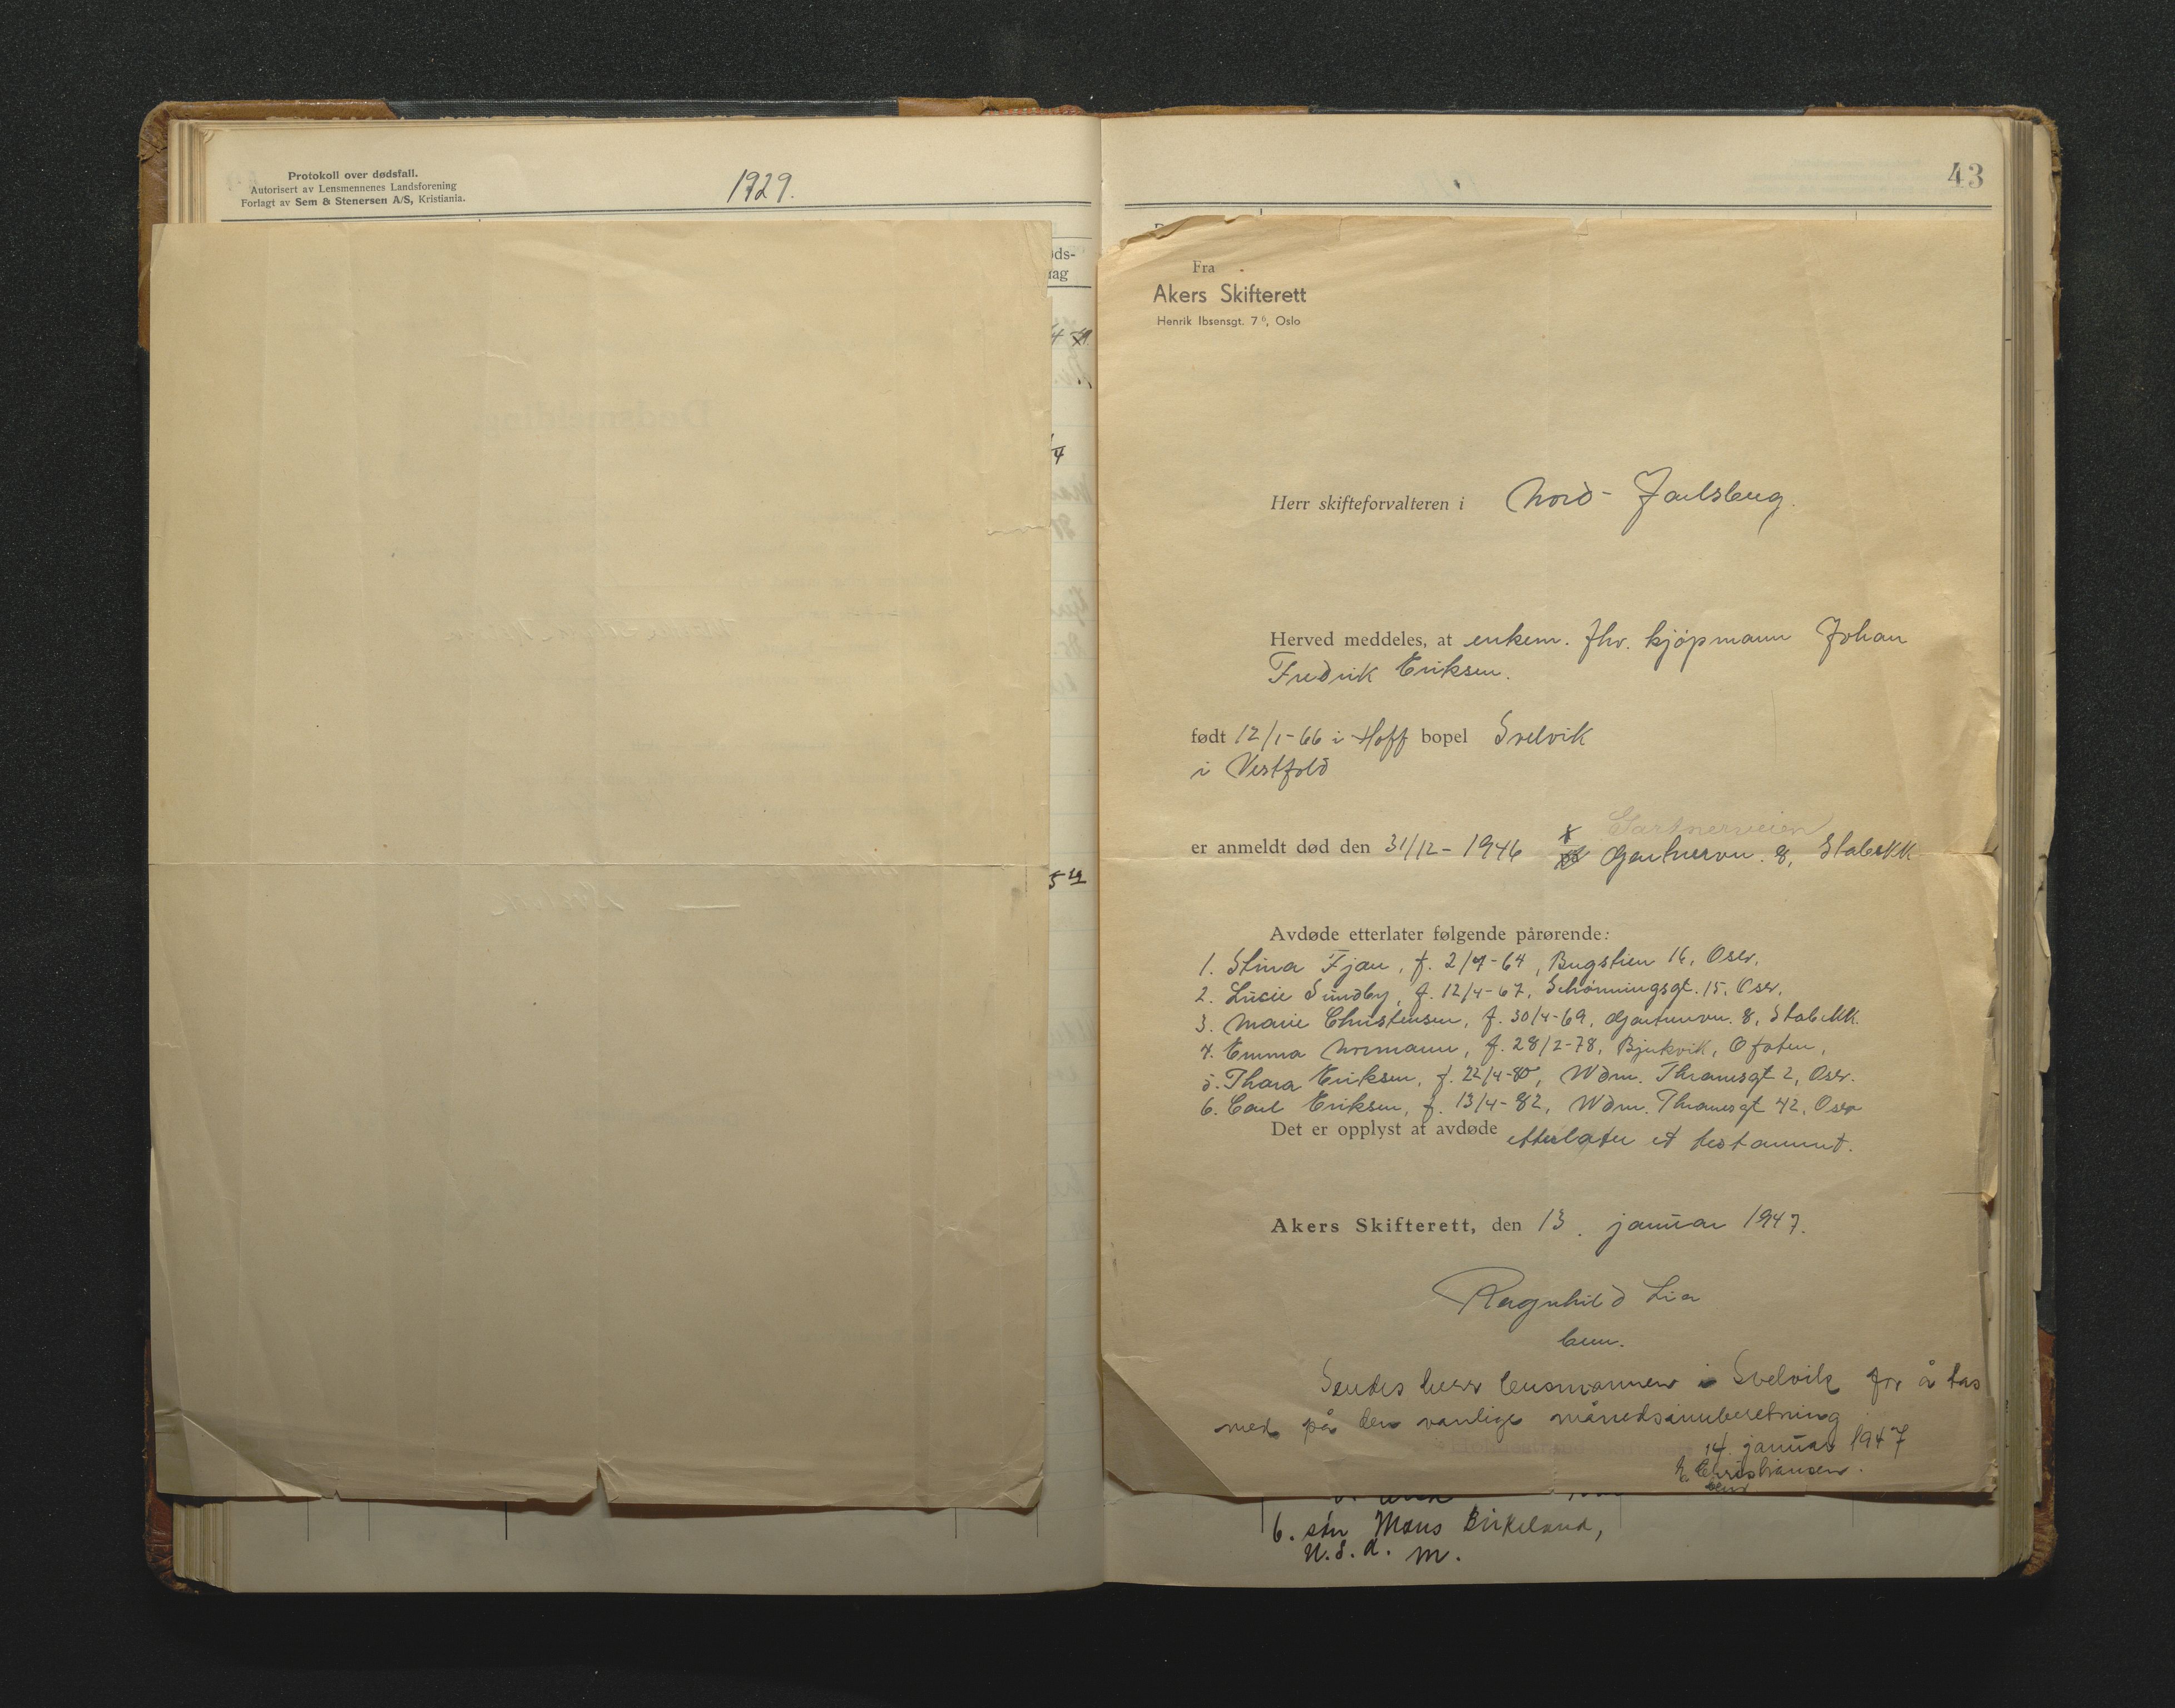 Protokoll over dødsfall.
Autorisert av Lensmennenes Landsforening
Forlagt av Sem & Stenersen A/S, Kristiania.
1929.
43
Fra
Akers Skifterett
Henrik Ibsensgt. 7 b, Oslo
Herr skifteforvalteren i Nord-Jarlsberg.
Herved meddeles, at enkem. fhv. kjøpmann Johan
Fredrik Eriksen.
født 12/1-66 i Hoff bopel Svelvik
i Vestfold
Gartnerveien
er anmeldt død den 31/12-1946 x Gartnervn. 8, Stabekk
Avdøde etterlater følgende pårørende:
1. Stina Fjau, f. 2/7-64, Bugstien 16, Oslo.
2. Lucie Sundby, f. 12/4-67, Schønningsgt. 15, Oslo.
3. Marie Christensen, f. 30/4-69, Gartnervn. 8, Stabekk.
4. Emma Normann, f. 28/2-78, Bjerkvik, Ofoten,
5. Thora Eriksen, f. 22/4-80, Wdm. Thranesgt 2, Oslo.
6. Carl Eriksen, f. 13/4-82, Wdm. Thranesgt 42, Oslo
Det er opplyst at avdøde etterlater et testament.
Akers Skifterett, den 13. januar 1947.
Ragnhild Lia
Sendes herr lensmannen i Svelvik for å tas
med på den vanlige månedsinnberetning
14. januar 1947
E. Christiansen.
6. søn Mons Birkeland,
U.S.A. m.